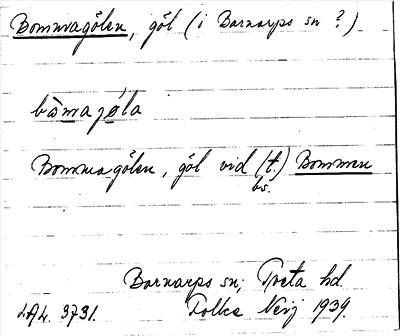 Bommagölen, göl (i Barnarps sn?)
bo̊majøla
Bommagölen, göl vid (t.) Bommen
bs.
Barnarps sn, Tveta hd.
LAL. 3731. Folke Nerj 1939.